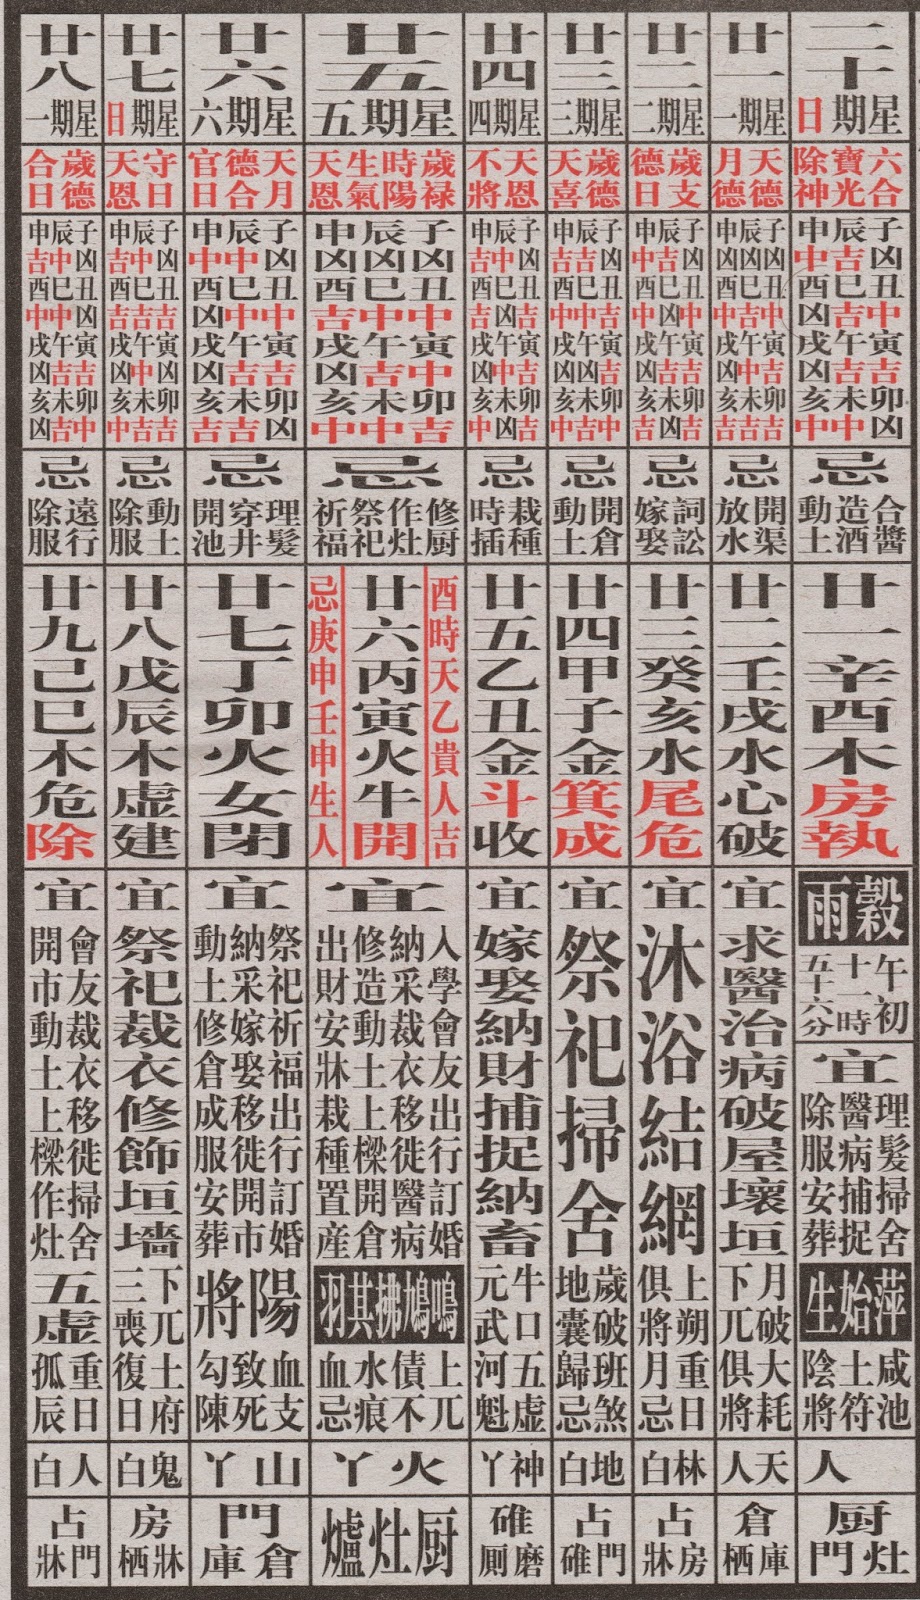 二十
星期日
六合
寶光
除神
子凶丑中寅吉卯凶
辰吉巳吉午吉未中
申中酉凶戌凶亥中
忌
合醬
造酒
動土
廿一辛酉木房執
穀雨
午初
十一時
五十六分
宜
理髮掃舍
醫病捕捉
除服安葬
萍始生
咸池
土符
陰將
人
厨
灶門
廿一
星期一
天德
月德
子凶丑中寅吉卯吉
辰凶巳吉午中未吉
申凶酉中戌凶亥吉
忌
開渠
放水
廿二壬戌水心破
宜
求醫治病破屋壞垣
月破大耗
下兀俱將
天人
倉
庫栖
廿二
星期二
歲支
德日
子凶丑中寅吉卯吉
辰吉巳凶午吉未凶
申中酉中戌凶亥吉
忌
詞訟
嫁娶
廿三癸亥水尾危
宜
沐浴結網
上朔重日
俱將月忌
林白
占
房牀
廿三
星期三
歲德
天喜
子吉丑吉寅吉卯中
辰吉巳中午吉未中
申中酉中戌凶亥吉
忌
開倉
動土
廿四甲子金箕成
宜
祭祀掃舍
歲破班煞
地囊歸忌
地白
占
門碓
廿四
星期四
天恩
不將
子凶丑吉寅吉卯吉
辰中巳凶午中未凶
申吉酉吉戌凶亥中
忌
栽種
時插
廿五乙丑金斗收
宜
嫁娶納財捕捉納畜
牛口五虛
元武河魁
神丫
碓
磨厠
廿五
星期五
歲祿
時陽
生氣
天恩
子凶丑中寅中卯吉
辰凶巳中午吉未中
申凶酉吉戌凶亥中
忌
修厨
作灶
祭祀
祈福
酉時天乙貴人吉
廿六丙寅火牛開
忌庚申壬申生人
宜
入學會友出行訂婚
納采裁衣移徙醫病
修造動土上樑開倉
出財安牀栽種置産
鳴鳩拂其羽
上兀
債不
水痕
血忌
火丫
厨灶爐
廿六
星期六
天月
德合
官日
子凶丑中寅吉卯凶
辰中巳中午吉未吉
申中酉凶戌凶亥吉
忌
理髮
穿井
開池
廿七丁卯火女閉
宜
祭祀祈福出行訂婚
納采嫁娶移徙開市
動土修倉成服安葬
陽將
血支
致死
勾陳
山丫
門
倉庫
廿七
星期日
守日
天恩
子凶丑吉寅凶卯吉
辰中巳吉午中未吉
申吉酉吉戌凶亥中
忌
動土
除服
廿八戊辰木虛建
宜
祭祀裁衣修飾垣墻
下兀土府
三喪復日
鬼白
房
牀栖
廿八
星期一
歲德
合日
子凶丑凶寅吉卯中
辰中巳中午吉未吉
申吉酉中戌凶亥凶
忌
遠行
除服
廿九己巳木危除
宜
會友裁衣移徙掃舍
開市動土上樑作灶
五虛
重日
孤辰
人白
占
門牀